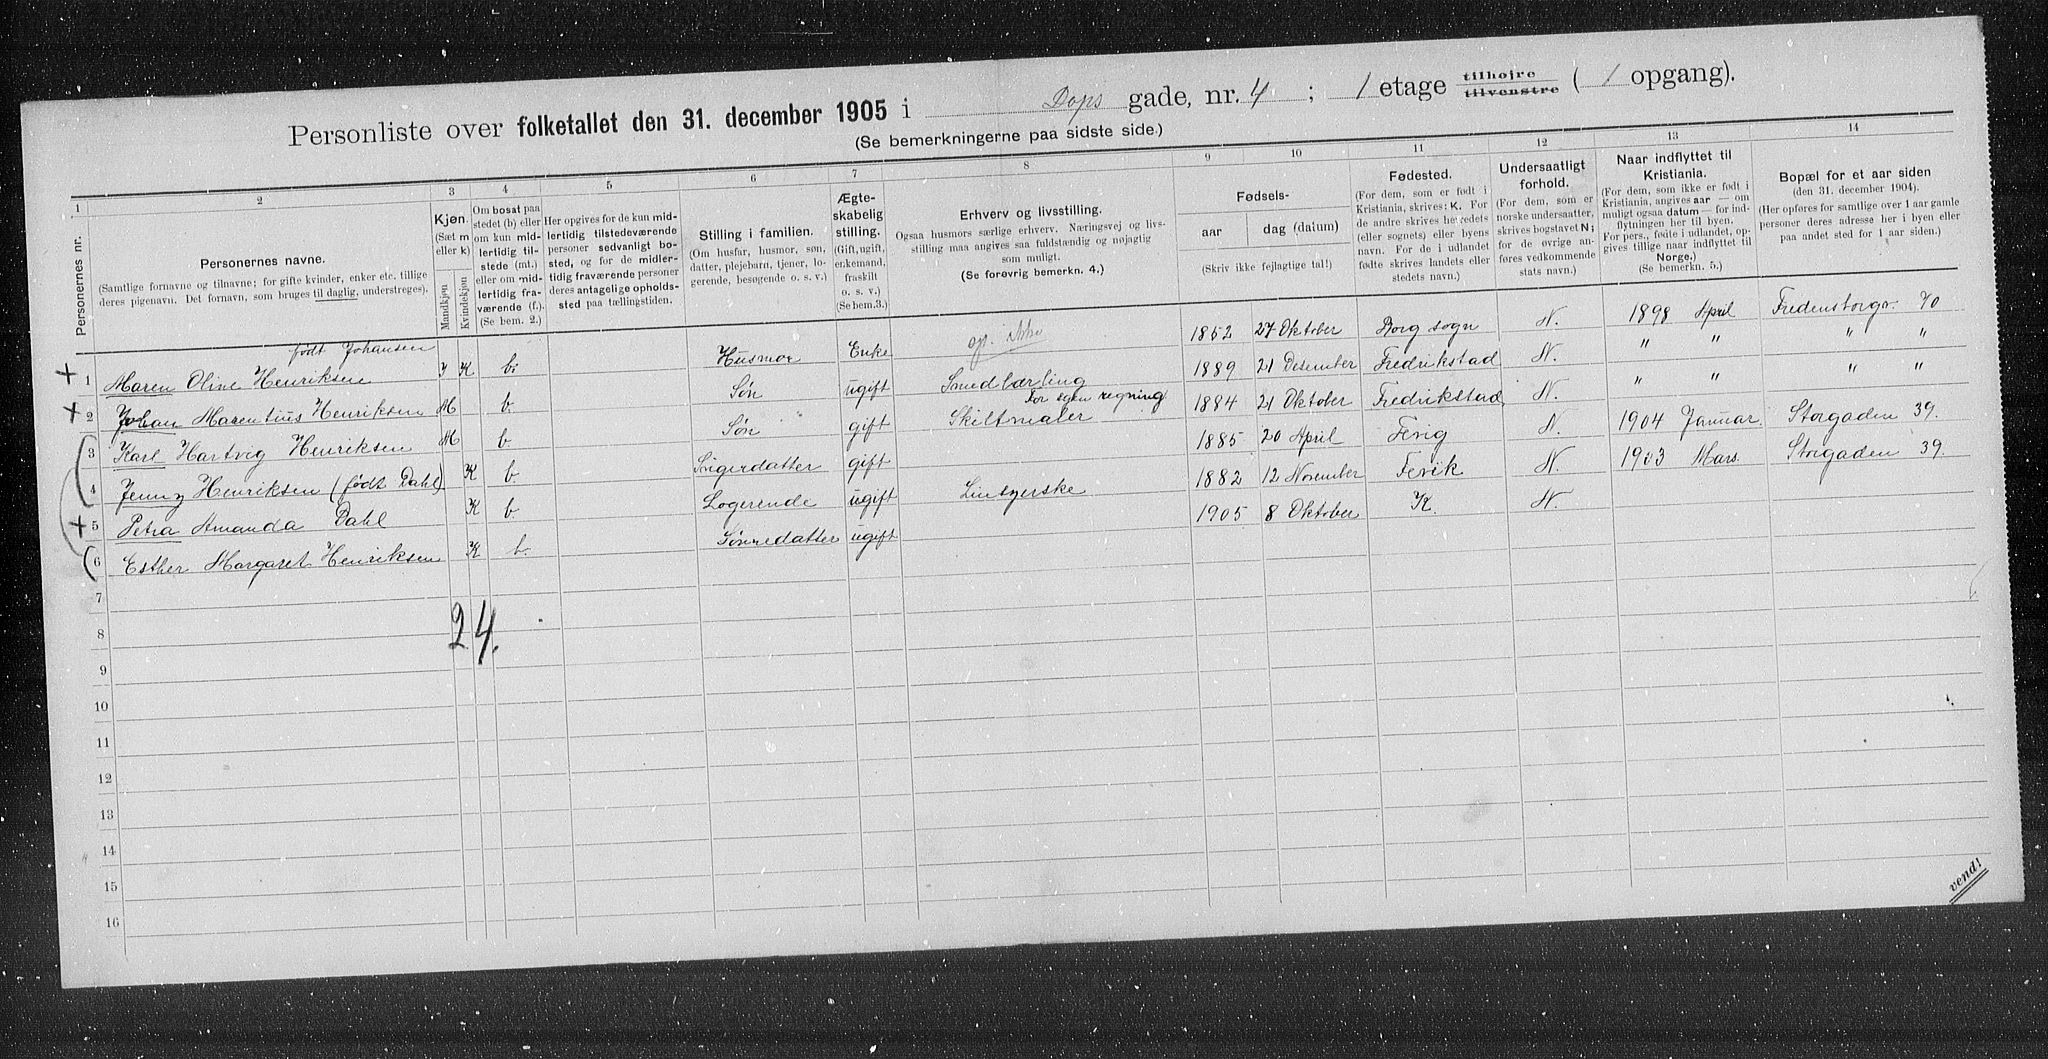 Personliste over folketallet den 31. december 1905 i Dops gade, nr. 4 ; 1 etage tilhøjre tilvenstre ( 1 opgang).
(Se bemerkningerne paa sidste side.)
1 2 3 4 5 6 7 8 9 10 11 12 13 14
Personernes nr.
Personernes navne.
(Samtlige fornavne og tilnavne; for gifte kvinder, enker etc. tillige
deres pigenavn. Det fornavn, som bruges til daglig, understreges).
Kjøn.
(Sæt m
eller k)
Mandkjøn
Kvindekjøn
Om bosat paa
stedet (b) eller
om kun mid-
lertidig til-
stede (mt.)
eller om mid-
lertidig fra-
værende (f.).
(Se bem. 2.)
Her opgives for de kun mid-
lertidig tilstedeværende
personer sedvanligt bo-
sted, og for de midler-
tidig fraværende personer
deres antagelige opholds-
sted paa tællingstiden.
Stilling i familien.
(Om husfar, husmor, søn,
datter, plejebarn, tjener, lo-
gerende, besøgende o. s. v.)
Ægte-
skabelig
stilling.
(Gift, ugift,
enkemand,
fraskilt
o. s. v.)
(Se bem.3.)
Erhverv og livsstilling.
Ogsaa husmors særlige erhverv. Næringsvej og livs-
stilling maa angives saa fuldstændig og nøjagtig
som muligt.
(Se forøvrig bemerkn. 4.)
Fødsels-
aar dag (datum)
(Skriv ikke fejlagtige tal!)
Fødested.
(For dem, som er født i
Kristiania, skrives: K. For
de andre skrives herredets
(eller sognets) eller byens
navn. For de i udlandet
fødte skrives landets eller
stedets navn.)
Undersaatligt
forhold.
(For dem, som er
norske undersaatter,
skrives bogstavet N;
for de øvrige an-
føres vedkommende
stats navn.)
Naar indflyttet til
Kristiania.
(For dem, som ikke er født i
Kristiania, angives aar — om
muligt ogsaa datum — for ind-
flytningen her til byen.
For pers., fødte i udlandet, op-
gives tillige naar indflyttet til
Norge.)
(Se bemerkn. 5.)
Bopæl for et aar siden
(den 31. december 1904).
(Her opføres for samtlige over 1 aar gamle
personer deres adresse her i byen eller
paa andet sted for 1 aar siden.)
født Johansen
1 Maren Oline Henriksen K b. Husmor Enke 1852 27 Oktober Borg sogn N. 1898 April Fredensborgv. 70
2 Johan Marentius Henriksen M b. Søn ugift Smedlærling 1889 21 Desember Fredrikstad N. " " " "
For egen regning
3 Karl Hartvig Henriksen M b Søn gift Skiltmaler 1884 21 Oktober Fredrikstad N. " " " "
4 Jenny Henriksen (født Dahl) K b. Svigerdatter gift 1885 20 April Fevig N. 1904 Januar. Storgaden 39.
5 Petra Amanda Dahl K b. Logerende ugift Linsyerske 1882 12 November Fevik N. 1903 Mars. Storgaden 39.
6 Esther Margaret Henriksen K b. Sønnedatter ugift 1905 8 Oktober K. N.
7
24.
8
9
10
11
12
13
14
15
16
vend!